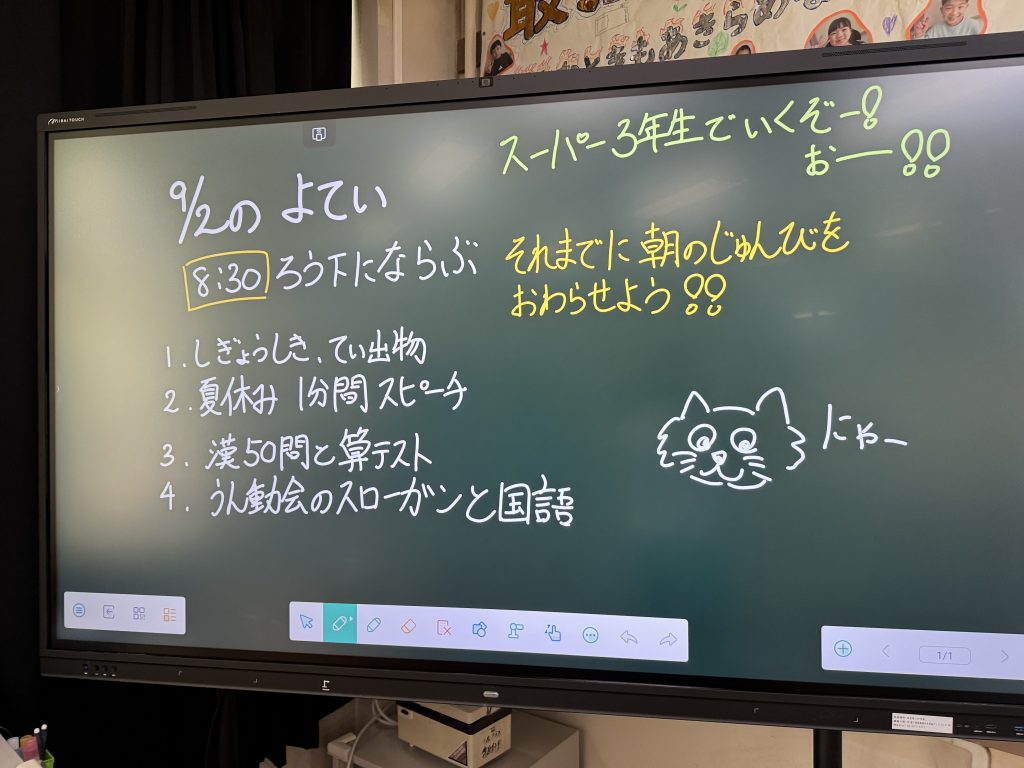 MIRAI TOUCH
スーパー3年生でいくぞー!
おー!!
9/2の よてい
8:30 ろう下にならぶ
それまでに 朝のじゅんびを
おわらせよう!!
1. しぎょうしき、てい出物
2. 夏休み 1分間 スピーチ
3. 漢50問と算テスト
4. うん動会のスローガンと国語
にゃー
1/1